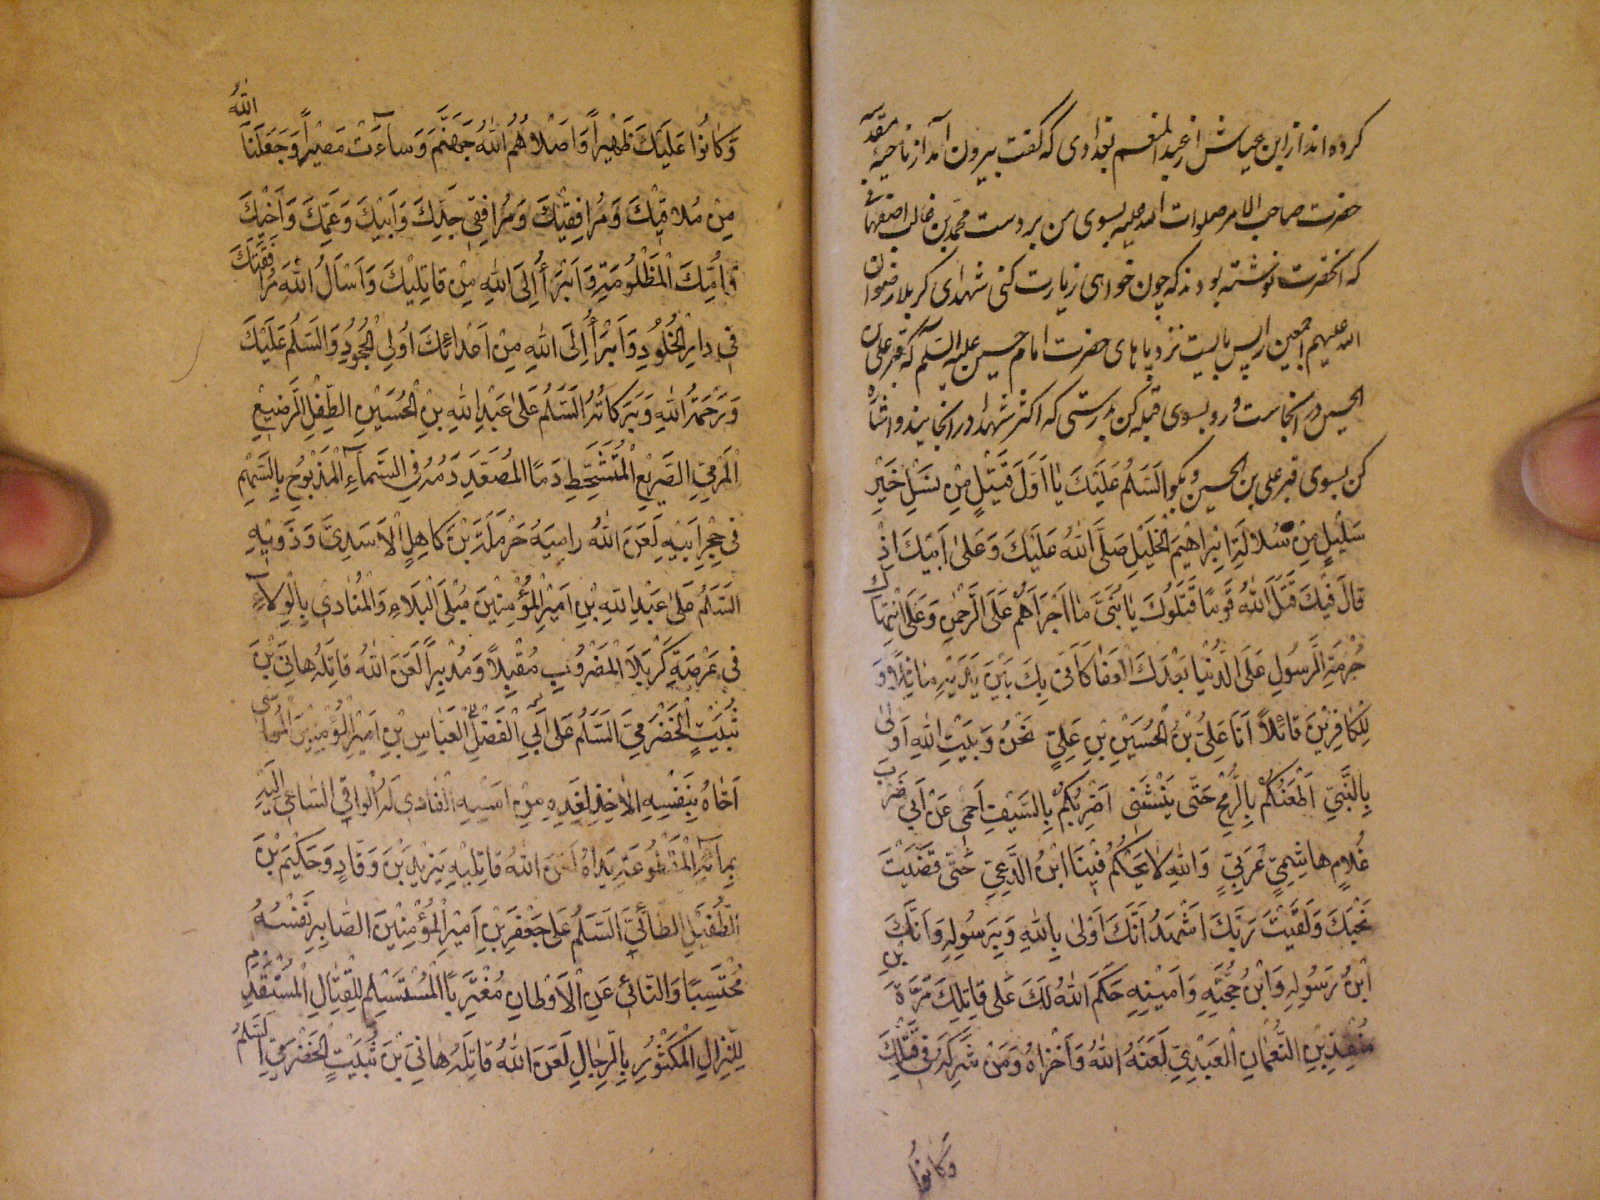 کرده اند از ابن عیاش از عبد المنعم بغدادی که گفت بیرون آمد از ناحیهٔ مقدسه
حضرت صاحب الامر صلوات الله علیه بسوی من بر دست محمد بن غالب اصفهانی
که آنحضرت نوشته بودند که چون خواهی زیارت کنی شهدای کربلا رضوان
الله علیهم اجمعین را پس بایست نزد پاهای حضرت امام حسین علیه السلم که قبر علی بن
الحسین در آنجاست و رو بسوی قبله کن بدرستی که اکثر شهدا در آنجایند و اشاره
کن بسوی قبر علی بن الحسین و بگو اَلسَّلٰمُ عَلَیْكَ یٰا اَوَّلَ قَتیٖلٍ مِنْ نَسْلِ خَیْرِ
سَلیٖلٍ مِنْ سُلالَةِ اِبْرٰاهیٖمَ الْخَلیٖلِ صَلَّی اللهُ عَلَیْكَ وَ عَلیٰ اَبیٖكَ اِذْ
قٰالَ فیٖكَ قَتَلَ اللهُ قَوْمًا قَتَلُوكَ یٰا بُنَیَّ مٰا اَجْرَاَهُمْ عَلَی الرَّحْمٰنِ وَ عَلَی انْتِهٰاكِ
حُرْمَةِ الرَّسُولِ عَلَی الدُّنْیٰا بَعْدَكَ الْعَفٰا كَاَنّیٖ بِكَ بَیْنَ یَدَیْهِ مٰاثِلًا وَ
لِلْكٰافِریٖنَ قٰائِلًا اَنَا عَلِیُّ بْنُ الْحُسَیْنِ بْنِ عَلِیٍّ نَحْنُ وَ بَیْتِ اللهِ اَوْلیٰ
بِالنَّبِیِّ اَطْعَنُكُمْ بِالرُّمْحِ حَتّٰی یَنْثَنیٖ اَضْرِبُكُمْ بِالسَّیْفِ اَحْمیٖ عَنْ اَبیٖ ضَرْبَ
غُلامٍ هٰاشِمِیٍّ عَرَبِیٍّ وَاللهِ لا یَحْكُمُ فیٖنَا ابْنُ الدَّعِیِّ حَتّٰی قَضَیْتَ
نَحْبَكَ وَ لَقیٖتَ رَبَّكَ اَشْهَدُ اَنَّكَ اَوْلیٰ بِاللهِ وَ بِرَسُولِهِ وَ اَنَّكَ
ابْنُ رَسُولِهِ وَ ابْنُ حُجَّتِهِ وَ اَمیٖنِهِ حَكَمَ اللهُ لَكَ عَلیٰ قٰاتِلِكَ مُرَّةَ بْنِ
مُنْقِذِ بْنِ النُّعْمٰانِ الْعَبْدِیِّ لَعَنَهُ اللهُ وَ اَخْزٰاهُ وَ مَنْ شَرِكَهُ فیٖ قَتْلِكَ
وَ كٰانُوا
وَ كٰانُوا عَلَیْكَ ظَهیٖرًا وَ اَصْلاهُمُ اللهُ جَهَنَّمَ وَ سٰآءَتْ مَصیٖرًا وَ جَعَلَنَا اللهُ
مِنْ مُلاقیٖكَ وَ مُرٰافِقیٖكَ وَ مُرٰافِقیٖ جَدِّكَ وَ اَبیٖكَ وَ عَمِّكَ وَ اَخیٖكَ
وَ اُمِّكَ الْمَظْلُومَةِ وَ اَبْرَأُ اِلَی اللهِ مِنْ قٰاتِلیٖكَ وَ اَسْأَلُ اللهَ مُرٰافَقَتَكَ
فیٖ دٰارِ الْخُلُودِ وَ اَبْرَأُ اِلَی اللهِ مِنْ اَعْدٰائِكَ اُولِی الْجُحُودِ وَ السَّلٰمُ عَلَیْكَ
وَ رَحْمَةُ اللهِ وَ بَرَكٰاتُهُ اَلسَّلٰمُ عَلیٰ عَبْدِ اللهِ بْنِ الْحُسَیْنِ الطِّفْلِ الرَّضیٖعِ
الْمَرْمِیِّ الصَّریٖعِ الْمُتَشَحِّطِ دَمًا الْمُصَعَّدِ دَمُهُ فِی السَّمٰآءِ الْمَذْبُوحِ بِالسَّهْمِ
فیٖ حِجْرِ اَبیٖهِ لَعَنَ اللهُ رٰامِیَهُ حَرْمَلَةَ بْنَ كٰاهِلِ الْاَسَدِیَّ وَ ذَویٖهِ
اَلسَّلٰمُ عَلیٰ عَبْدِ اللهِ بْنِ اَمیٖرِ الْمُؤْمِنیٖنَ مُبْلَی الْبَلاءِ وَ الْمُنٰادیٖ بِالْوِلآءِ
فیٖ عَرْصَةِ كَرْبَلا الْمَضْرُوبِ مُقْبِلًا وَ مُدْبِرًا لَعَنَ اللهُ قٰاتِلَهُ هٰانِیَ بْنَ
ثُبَیْتٍ الْحَضْرَمِیَّ اَلسَّلٰمُ عَلیٰ اَبِی الْفَضْلِ الْعَبّٰاسِ بْنِ اَمیٖرِ الْمُؤْمِنیٖنَ الْمُوٰاسیٖ
اَخٰاهُ بِنَفْسِهِ الْاٰخِذِ لِغَدِهِ مِنْ اَمْسِهِ الْفٰادیٖ لَهُ الْوٰاقِی السّٰاعیٖ اِلَیْهِ
بِمٰآئِهِ الْمَقْطُوعَةِ یَدٰاهُ لَعَنَ اللهُ قٰاتِلیٖهِ یَزیٖدَ بْنَ وَقّٰادٍ وَ حَكیٖمَ بْنَ
الطُّفَیْلِ الطّٰائِیَّ اَلسَّلٰمُ عَلیٰ جَعْفَرِ بْنِ اَمیٖرِ الْمُؤْمِنیٖنَ الصّٰابِرِ نَفْسُهُ
مُحْتَسِبًا وَ النّٰائیٖ عَنِ الْاَوْطٰانِ مُغْتَرِبًا الْمُسْتَسْلِمِ لِلْقِتٰالِ الْمُسْتَقْدِمِ
لِلنِّزٰالِ الْمَكْثُورِ بِالرِّجٰالِ لَعَنَ اللهُ قٰاتِلَهُ هٰانِیَ بْنَ ثُبَیْتٍ الْحَضْرَمِیَّ اَلسَّلٰمُ